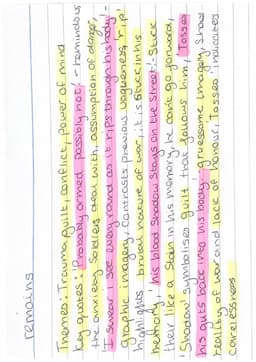 remains
Themes: Trauma, guilt, conflict, power of mind
key quotes: 'Probably armed possibly not' - reminds us
the anxiety soldiers deal with, assumption of danger,
'I swear I see every round as it rips through his body' -
graphic imagery, contrasts previous vagueness, 'rip'
highlights brutal nature of war, it is stuck in his
memory, 'his blood shadow stays on the street' - stuck
their like a stain in his memory, he cant go forward,
'Shadow' symbolises guilt that follows him, 'Tosses
his guts back into his body' gruesome imagery, shows
reality of war and lack of honour, 'Tosses' indicates
carelessness